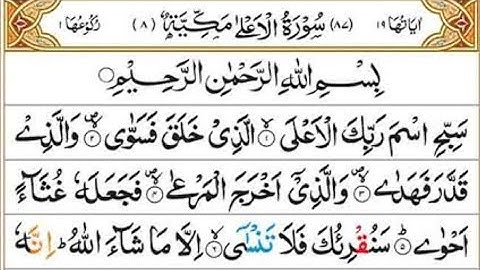 اٰیَاتُهَا ۱۹ (۸۷) سُوْرَةُ الْاَعْلٰى مَكِّیَّةٌ (۸) رُكُوْعُهَا ۱
بِسْمِ اللّٰهِ الرَّحْمٰنِ الرَّحِیْمِ
سَبِّحِ اسْمَ رَبِّكَ الْاَعْلَى ۙ۝۱ الَّذِیْ خَلَقَ فَسَوّٰى ۪ۙ۝۲ وَ الَّذِیْ
قَدَّرَ فَهَدٰى ۪ۙ۝۳ وَ الَّذِیْۤ اَخْرَجَ الْمَرْعٰى ۪ۙ۝۴ فَجَعَلَهٗ غُثَآءً
اَحْوٰى ؕ۝۵ سَنُقْرِئُكَ فَلَا تَنْسٰۤى ۙ۝۶ اِلَّا مَا شَآءَ اللّٰهُ ؕ اِنَّهٗ